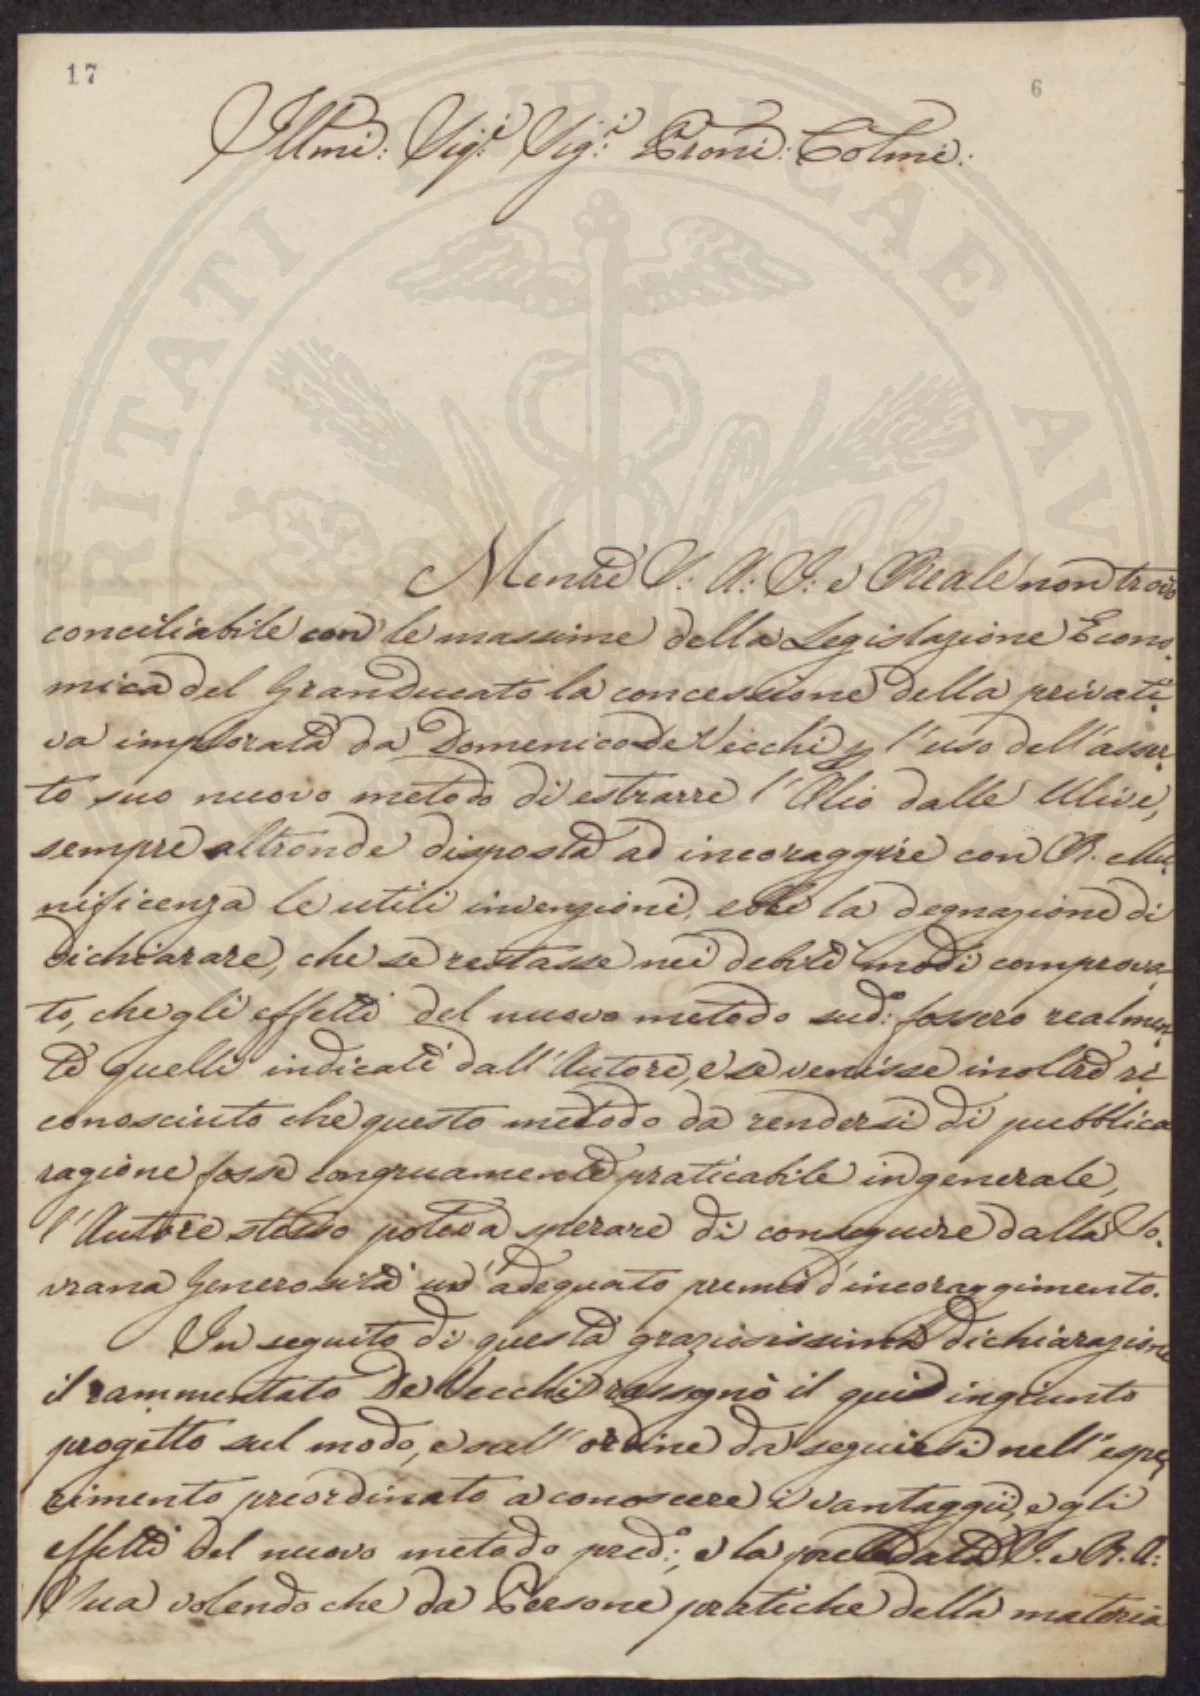 17
6
Illmi: Sig.i Sig.i Proni: Colmi:
Mentre S: A: I: e Reale non trovò
conciliabile con le massime della Legislazione Econo-
mica del Granducato la concessione della privati-
va implorata da Domenico De Vecchi p l'uso dell'asser-
to suo nuovo metodo di estrarre l'Olio dalle Ulive,
sempre altronde disposta ad incoraggire con R. Mu-
nificenza le utili invenzioni, ebbe la degnazione di
dichiarare, che se restasse nei debiti modi comprova-
to, che gli effetti del nuovo metodo sud.o: fossero realmen-
te quelli indicati dall'Autore, e se venisse inoltre ri-
conosciuto che questo metodo da rendersi di pubblica
ragione fosse congruamente praticabile in generale,
l'Autore stesso poteva sperare di conseguire dalla So-
vrana Generosità un'adeguato premio d'incoraggimento.
In seguito di questa graziosissima dichiarazione
il rammentato De Vecchi rassegnò il quì ingiunto
progetto sul modo, e sull'ordine da seguirsi nell'espe-
rimento preordinato a conoscere i vantaggj, e gli
effetti del nuovo metodo pred.o:, e la prelodata I. e R. A:
Sua volendo che da Persone pratiche della materia
VTILITATI PVBLICAE AVCTAE